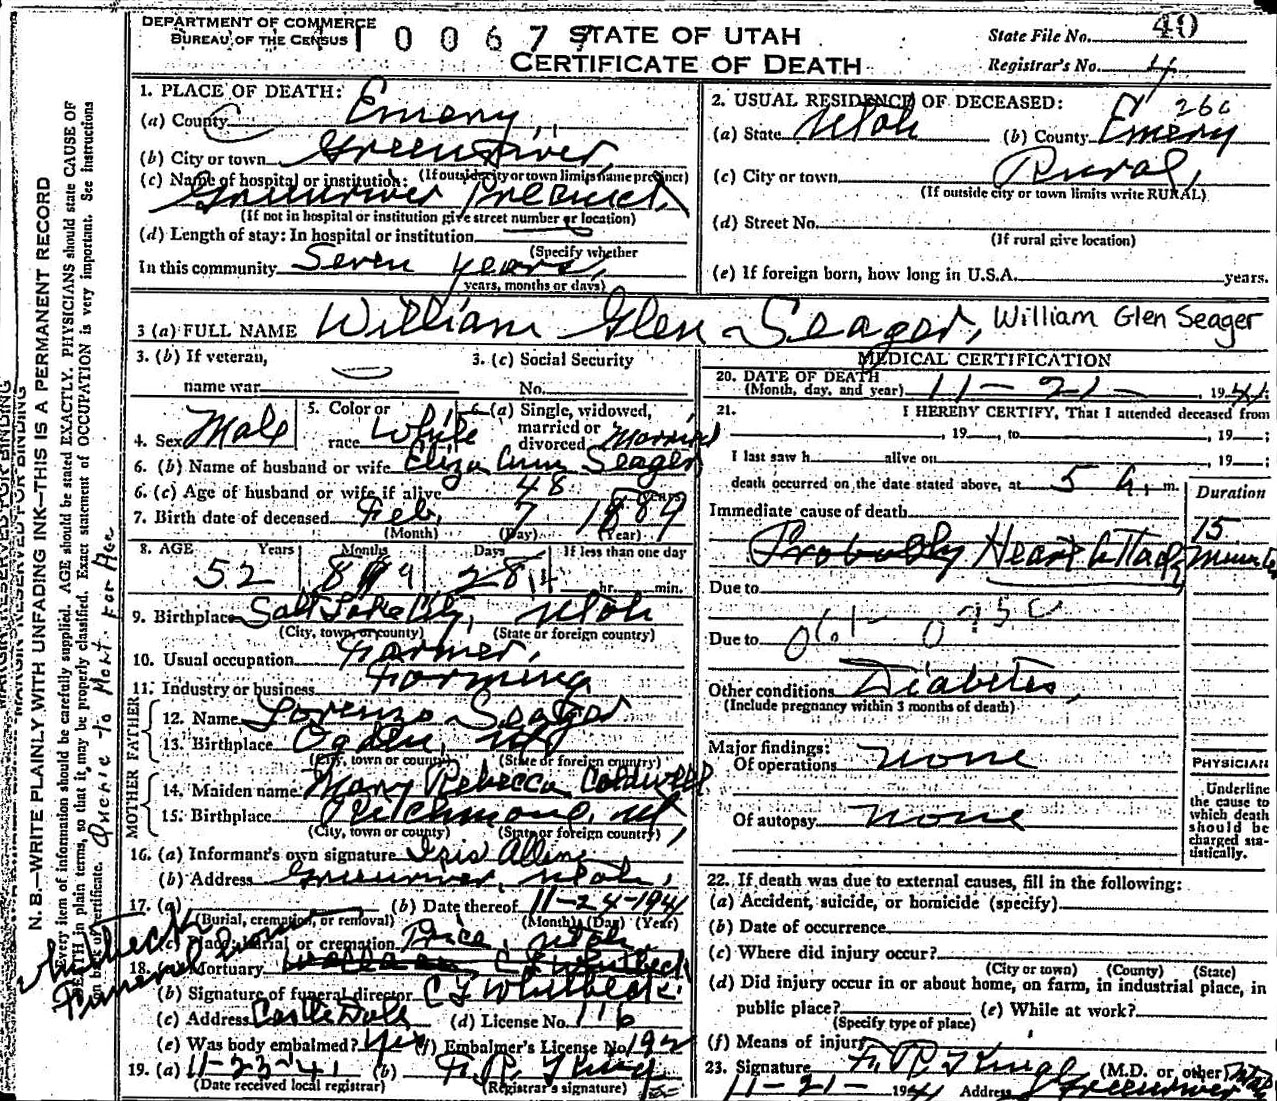 DEPARTMENT OF COMMERCE
BUREAU OF THE CENSUS
0 0 6 7 7
STATE OF UTAH
CERTIFICATE OF DEATH
State File No. 40
Registrar's No. 4
1. PLACE OF DEATH:
(a) County Emery,
(b) City or town Greenriver,
(If outside city or town limits name precinct)
(c) Name of hospital or institution:
Greenriver Precinct,
(If not in hospital or institution give street number or location)
(d) Length of stay: In hospital or institution
(Specify whether
In this community Seven years,
years, months or days)
2. USUAL RESIDENCE OF DECEASED:
260
(a) State Utah (b) County Emery
(c) City or town Rural,
(If outside city or town limits write RURAL)
(d) Street No.
(If rural give location)
(e) If foreign born, how long in U.S.A. years.
3 (a) FULL NAME William Glen Seager, William Glen Seager
3. (b) If veteran,
name war
3. (c) Social Security
No.
4. Sex Male
5. Color or
race White
6. (a) Single, widowed,
married or
divorced Married
6. (b) Name of husband or wife Eliza Ann Seager
6. (c) Age of husband or wife if alive 48 years
7. Birth date of deceased Feb. 7 1889
(Month) (Day) (Year)
8. AGE Years Months Days If less than one day
52 9 14 hr. min.
9. Birthplace Salt Lake City, Utah
(City, town, or county) (State or foreign country)
10. Usual occupation Farmer,
11. Industry or business Farming
FATHER
12. Name Lorenzo Seager
13. Birthplace Ogden, Ut
(City, town or county) (State or foreign country)
MOTHER
14. Maiden name Mary Rebecca Coldwell
15. Birthplace Richmond, Ut,
(City, town or county) (State or foreign country)
16. (a) Informant's own signature Iris Allene
(b) Address Greenriver, Utah,
17. (a) (b) Date thereof 11-24-1941
(Burial, cremation, or removal) (Month) (Day) (Year)
(c) Place: burial or cremation Price, Utah.
18. (a) Mortuary C F Whitbeck
(b) Signature of funeral director C F Whitbeck.
(c) Address Castle Dale (d) License No. 116
(e) Was body embalmed? Yes (f) Embalmer's License No. 192
19. (a) 11-23-41 (b) F. R. King
(Date received local registrar) (Registrar's signature)
MEDICAL CERTIFICATION
20. DATE OF DEATH
(Month, day, and year) 11-21- 1941.
21. I HEREBY CERTIFY, That I attended deceased from
, 19 , to , 19 ;
I last saw h alive on , 19 ;
death occurred on the date stated above, at 5 A. m.
Duration
Immediate cause of death
Probably Heart Attack
15 minutes
Due to
Due to
Other conditions Diabetes,
(Include pregnancy within 3 months of death)
Major findings:
Of operations none
Of autopsy none
PHYSICIAN
Underline
the cause to
which death
should be
charged sta-
tistically.
22. If death was due to external causes, fill in the following:
(a) Accident, suicide, or homicide (specify)
(b) Date of occurrence
(c) Where did injury occur?
(City or town) (County) (State)
(d) Did injury occur in or about home, on farm, in industrial place, in
public place? (e) While at work?
(Specify type of place)
(f) Means of injury
23. Signature F. R. King (M.D. or other)
11-21- 1941 Address Greenriver Utah
N. B.—WRITE PLAINLY WITH UNFADING INK—THIS IS A PERMANENT RECORD
Every item of information should be carefully supplied. AGE should be stated EXACTLY. PHYSICIANS should state CAUSE OF
DEATH in plain terms, so that it may be properly classified. Exact statement of OCCUPATION is very important. See instructions
on back of certificate.
MARGIN RESERVED FOR BINDING
Querie to Mort for Age
Whitbeck
Funeral Home